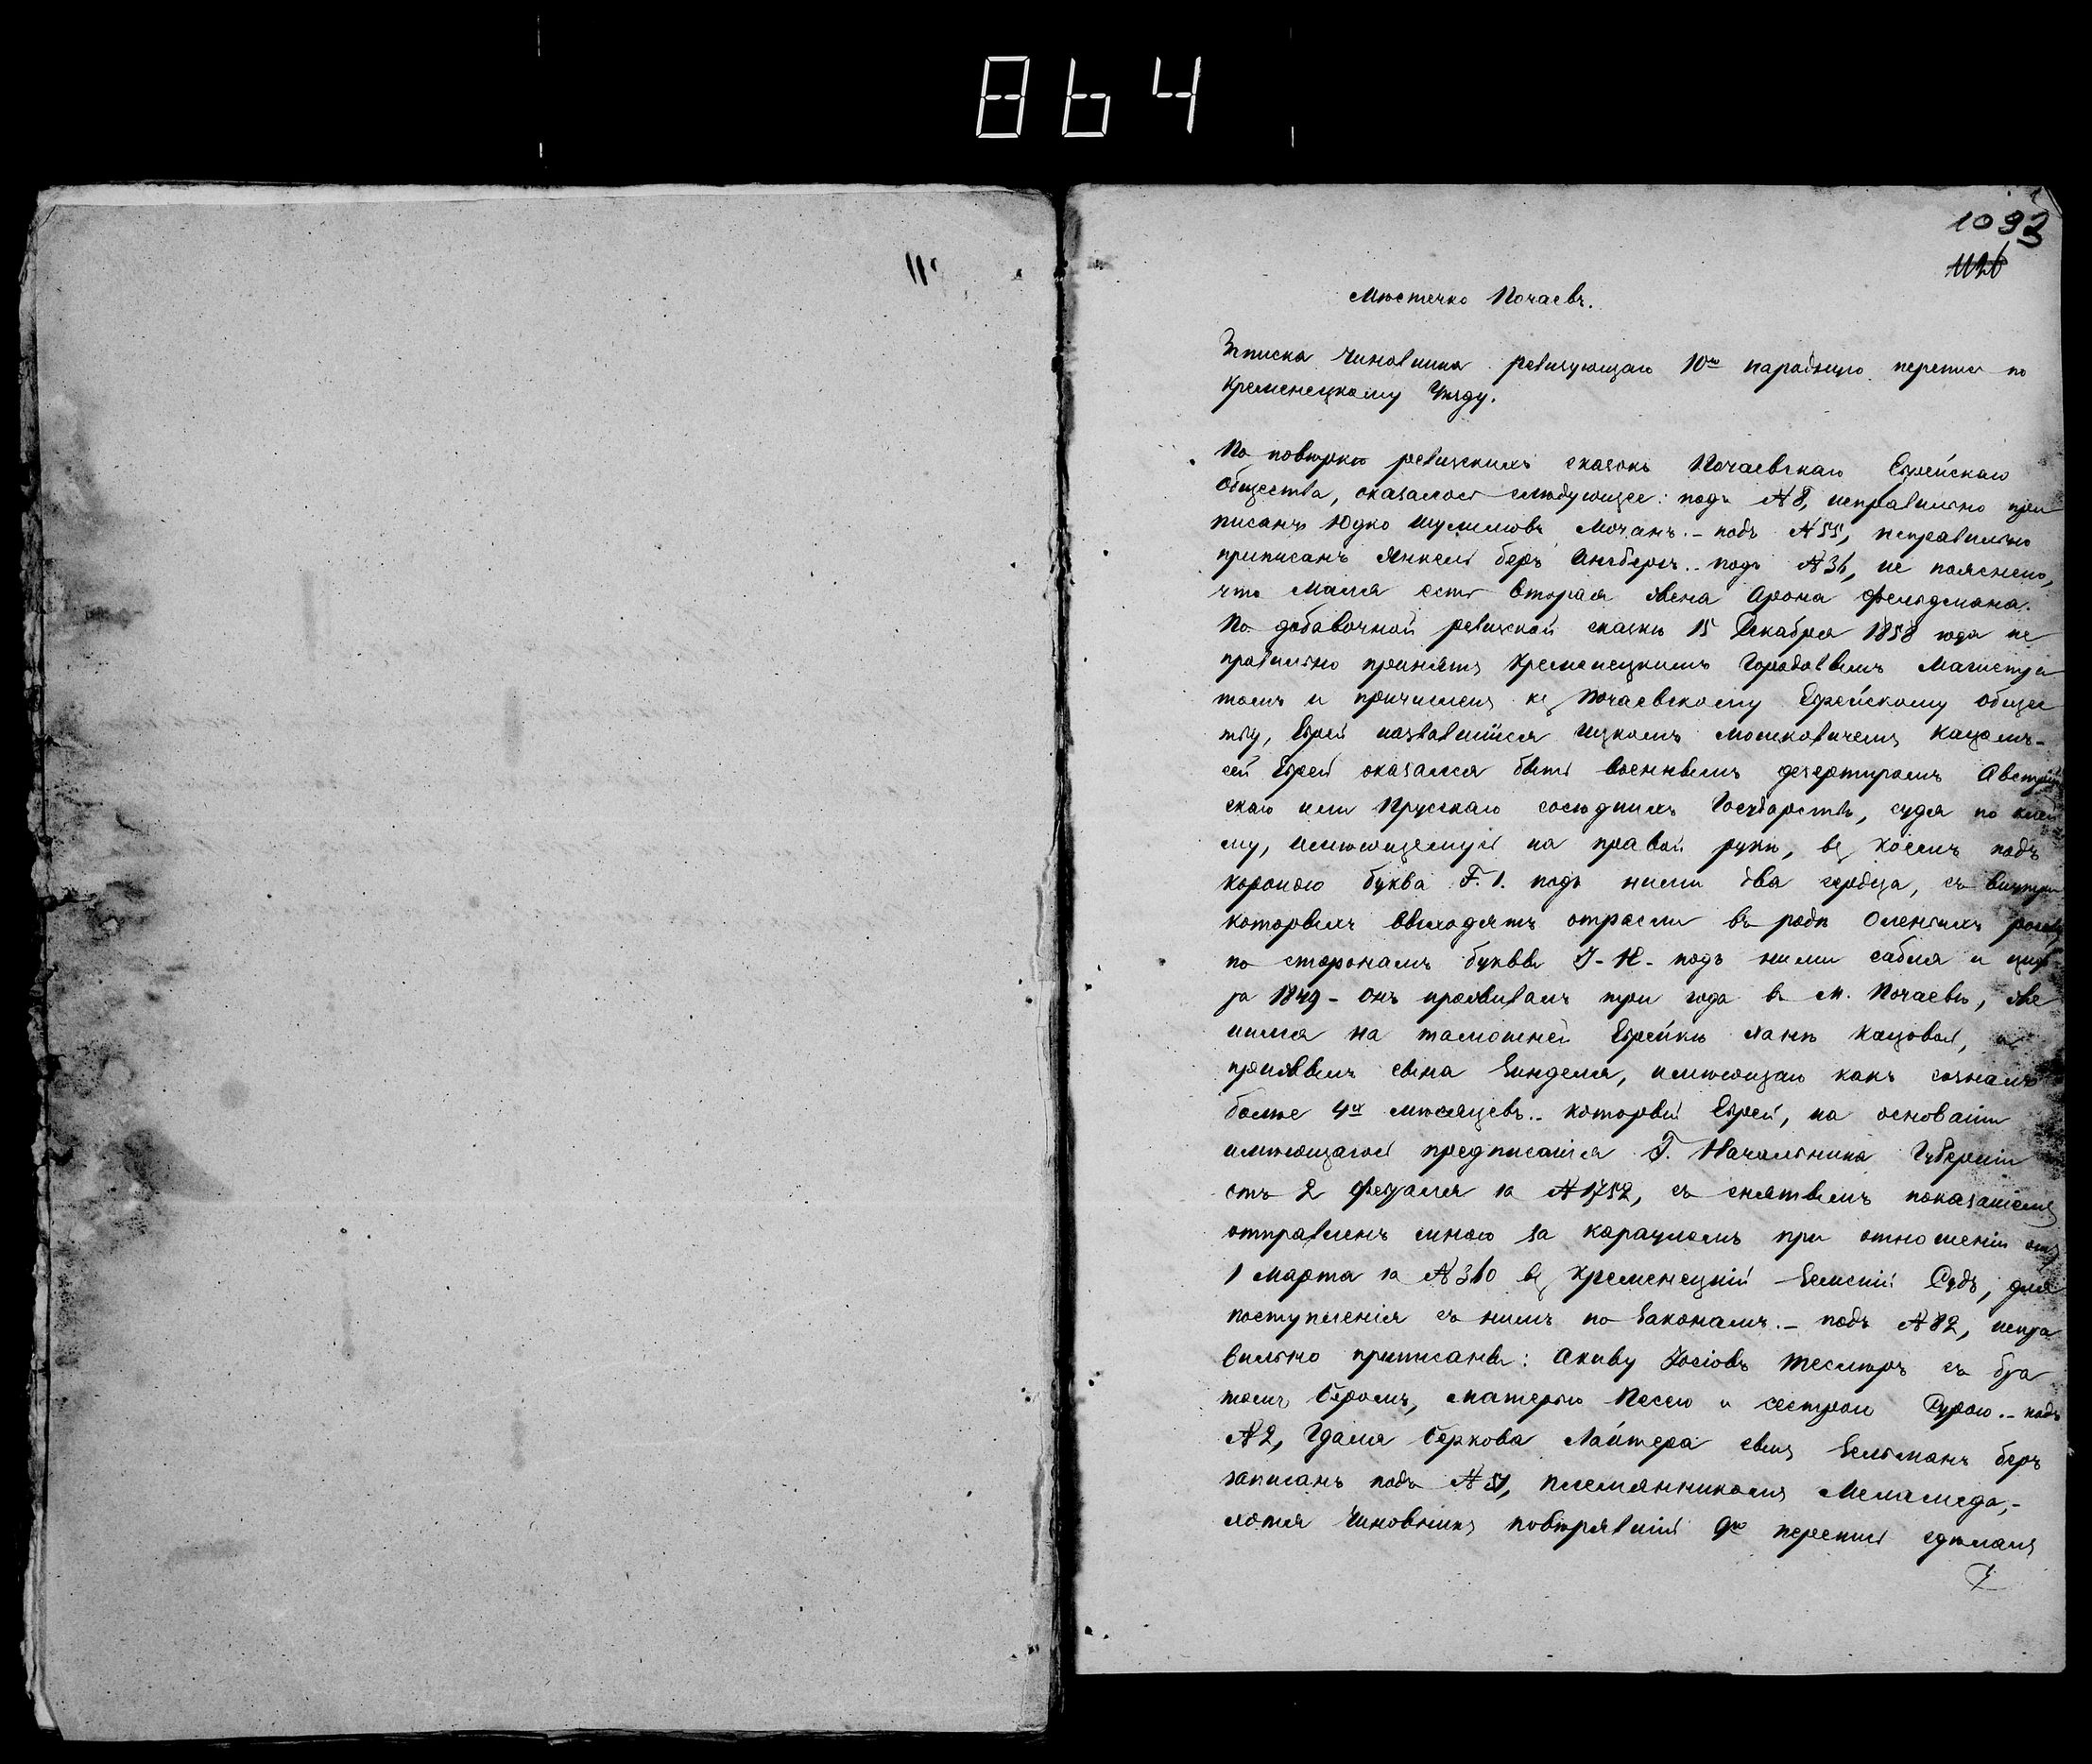 864
1093
1126
Мѣстечко Почаевъ.
Записка Чиновника ревизующаго 10ю народную перепись по
Кременецкому Уѣзду.
По повѣркѣ ревизскихъ сказокъ Почаевскаго Еврейскаго
Общества, оказалось слѣдующее: подъ № 8, неправильно при
писанъ Юдко Шулимовъ Мочанъ. – подъ № 55, неправильно
приписанъ Янкель Беръ Ингберъ. – подъ № 36, не пояснено,
что Малля есть вторая жена Арона Фельдмана.
По добавочной ревизской сказкѣ 15 Декабря 1858 года не
правильно принятъ Кременецкимъ Городовымъ Магистра
томъ и причисленъ къ Почаевскому Еврейскому общес
тву, Еврей назвавшійся Ицкомъ Мошковичемъ Кацомъ –
сей Еврей оказался быть военнымъ дезертиромъ Австрій
скаго или Прусскаго сосѣднихъ Государствъ, судя по клей
му, имѣющемуся на правой рукѣ, въ коемъ подъ
короною буква F. I. подъ ними два сердца, съ внутри
которыхъ выходятъ отрасли въ родѣ Оленьихъ роговъ,
по сторонамъ буквы J – H – подъ ними сабля и циф
ра 1849 – Онъ проживалъ три года въ М. Почаевѣ, же
нился на тамошней Еврейкѣ Ханѣ Кацовой, и
прижилъ сына Зинделя, имѣющаго какъ сознался
более 4хъ мѣсяцевъ. – который Еврей, на основаніи
имѣющагося предписанія Г. Начальника Губерніи
отъ 2 Февраля за № 1752, съ снятымъ показаніемъ
отправленъ мною за карауломъ при отношеніи отъ
1 Марта за № 310 въ Кременецкій Земскій Судъ, для
поступленія съ нимъ по Законамъ. – подъ № 82, непра
вильно приписаны: Акиву Іосіовъ Тесмеръ съ бра
томъ Беромъ, матерью Песею и сестрою Сурою. – подъ
№ 2, Гдаля Беркова Лайтера сынъ Зельманъ Беръ
записанъ подъ № 51, племянникомъ Меламеда, –
хотя Чиновникъ повѣрявшій 9ю перепись сдѣлалъ